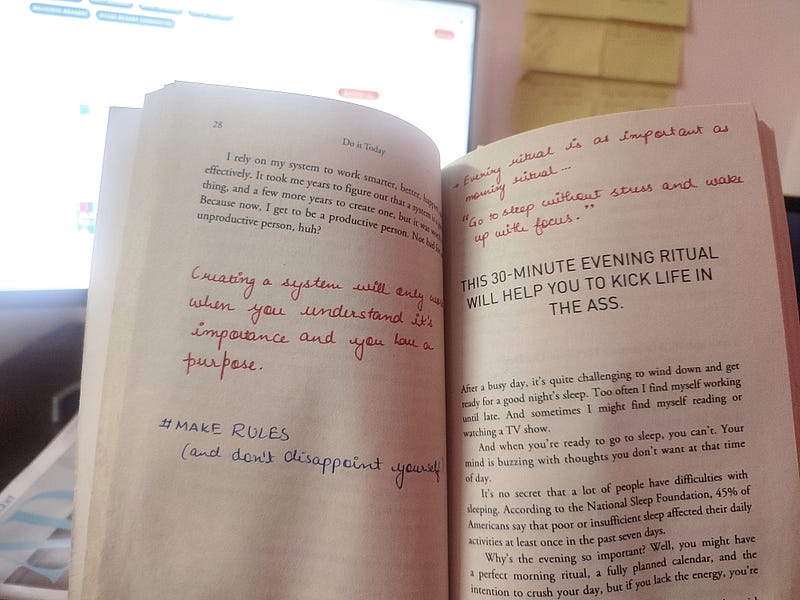 28
Do it Today
I rely on my system to work smarter, better,
effectively. It took me years to figure out that a system is
thing, and a few more years to create one, but it was
Because now, I get to be a productive person. Not bad for
unproductive person, huh?
Creating a system will only
when you understand it's
importance and you have a
purpose.
#MAKE RULES
(and don't disappoint yourself
* Evening ritual is as important as
morning ritual...
"Go to sleep without stress and wake
up with focus."
THIS 30-MINUTE EVENING RITUAL
WILL HELP YOU TO KICK LIFE IN
THE ASS.
After a busy day, it's quite challenging to wind down and get
ready for a good night's sleep. Too often I find myself working
until late. And sometimes I might find myself reading or
watching a TV show.
And when you're ready to go to sleep, you can't. Your
mind is buzzing with thoughts you don't want at that time
of day.
It's no secret that a lot of people have difficulties with
sleeping. According to the National Sleep Foundation, 45% of
Americans say that poor or insufficient sleep affected their daily
activities at least once in the past seven days.
Why's the evening so important? Well, you might have
a perfect morning ritual, a fully planned calendar, and the
intention to crush your day, but if you lack the energy, you're